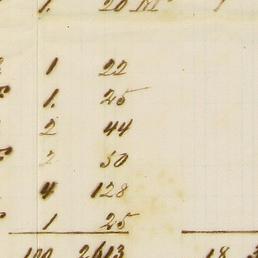 1. 20 1
1 22
1. 25
2 44
2 50
4 128
1 25
100 2613 18